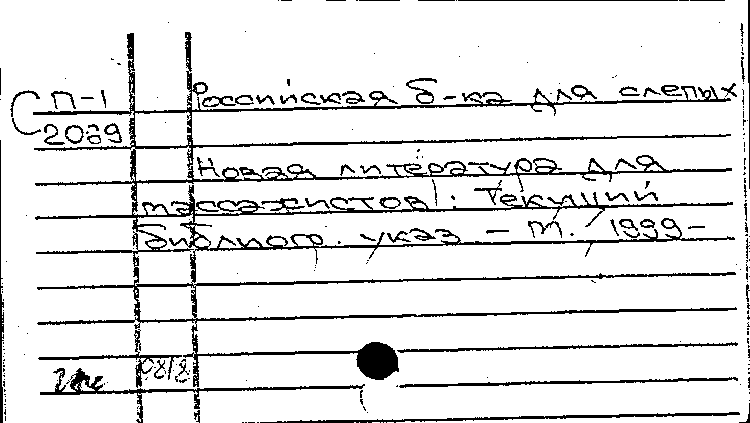 П-1 Российская б-ка для слепых
2069
Новая литература для
массажистов: Текущий
библиогр. указ. - М., 1999-